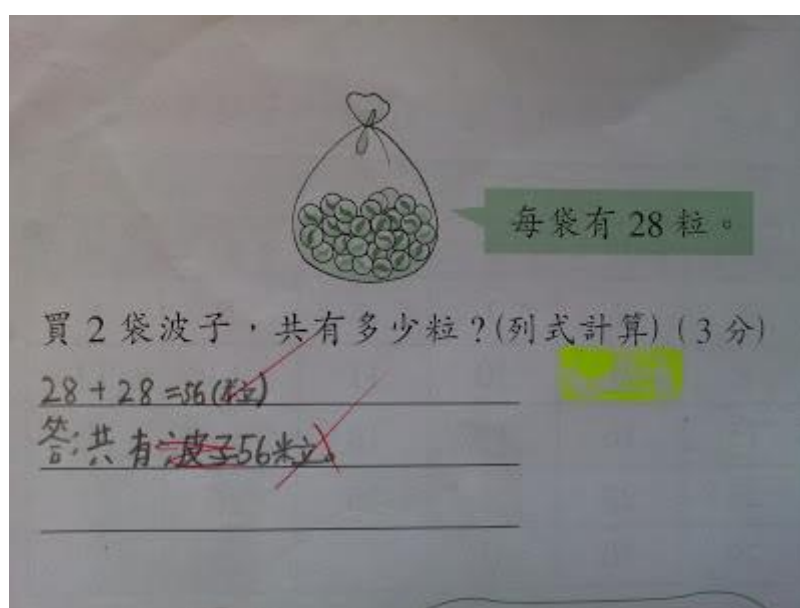 每袋有 28 粒。
買 2 袋波子,共有多少粒?(列式計算) (3 分)
28 + 28 = 56 (粒)
答:共有波子56粒。